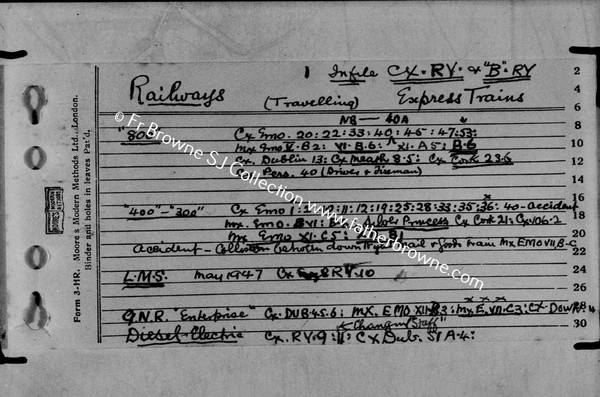 1 Infile CX. RY. & "B". RY
Railways (Travelling) Express Trains
NB - 40A
"800" Cx Emo. 20: 22: 33: 40: 45: 47: 53:
Mx Emo V. B2: VI. B.6: XI. A5: B.6
Cx. Dublin 13: Cx Meath 8.5: Cx Cork 23.6
Pers. 40 (Driver & Fireman)
"400" - "300" Cx Emo 11: 12: 19: 25: 28: 33: 35: 36: 40 - accident
Mx. Emo. Princess Cx Cork 21: Cx 106.2
Accident - Collision down mail & goods train Mx EMO VII B-C
L.M.S. May 1947 Cx RY. 10
G.N.R. "Enterprise" Cx. DUB. 45.6: MX. EMO XII B3: Mx E. VII. C3: Cx Down
& Changing Staff
Diesel-Electric Cx. RY. 9: 11: Cx Dub. 51 A.4:
2
4
6
8
10
12
14
16
18
20
22
24
26
28
30
Form 3-HR. Moore's Modern Methods Ltd., London.
Binder and holes in leaves Pat'd.
© Fr Browne SJ Collection www.fatherbrowne.com